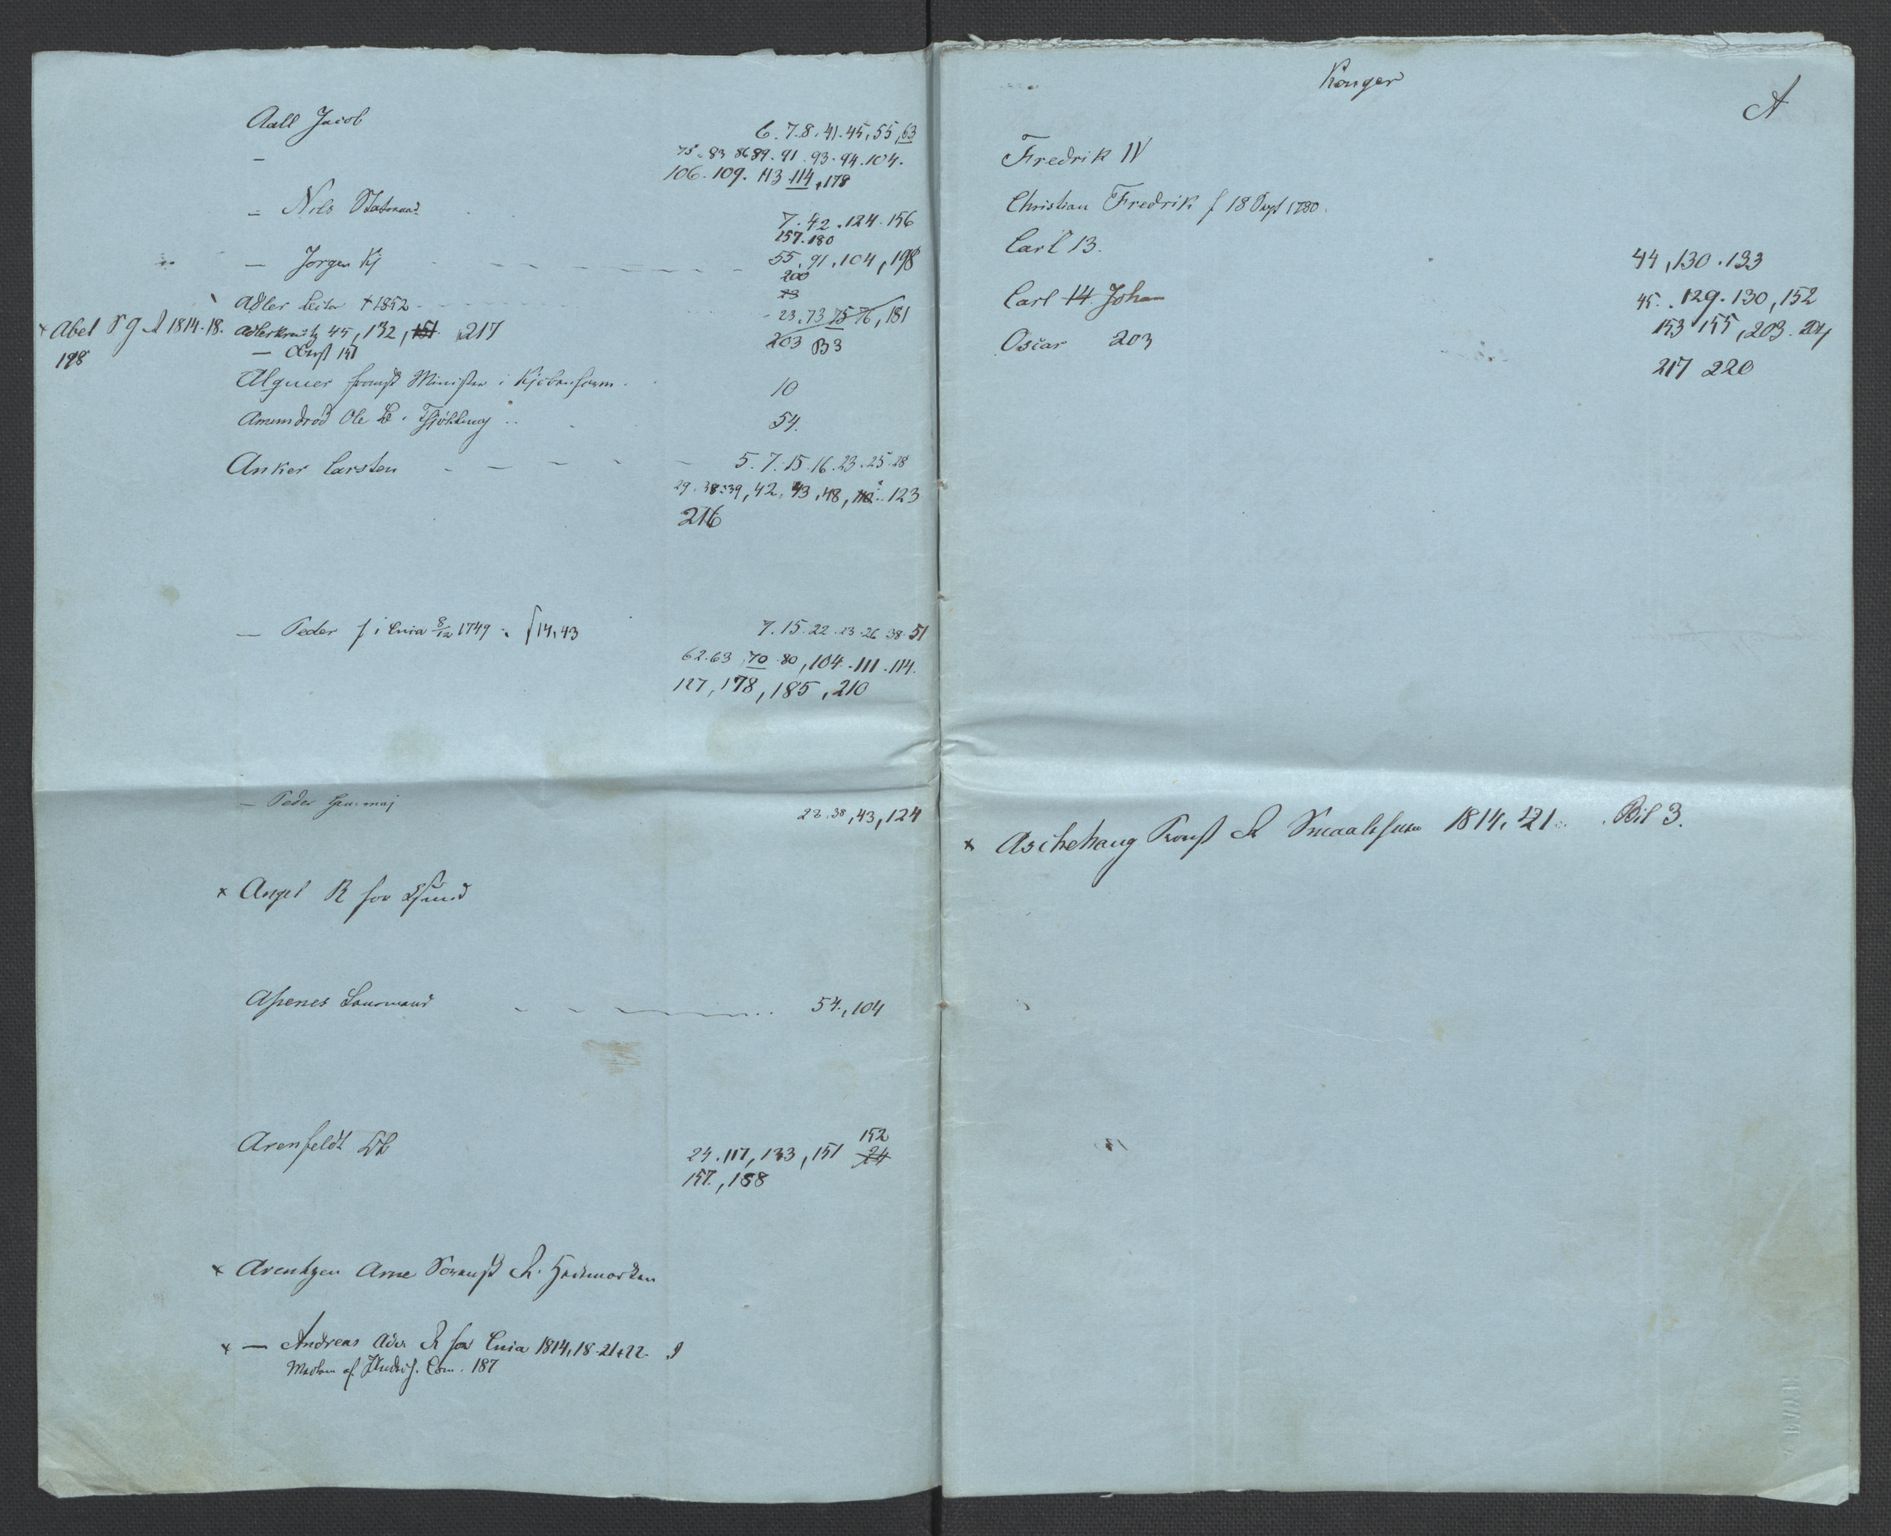 Aall Jacob 6. 7. 8. 41. 45, 55, 63
— 75. 83 86 89. 91. 93. 94. 104.
106. 109. 113. 114, 178
— Nils Statsraad 7. 42. 124. 156
157. 180
— Jørgen Kj 55. 91. 104, 198
200
Adler 1852 23. 73 75 76, 181
× Abel S 1814. 18.
198
Adlerkreutz 45, 132, 151, 217
203 B3
— Oberst 151
Alquier fransk Minister i Kjøbenhavn 10
Amundrød Ole 54.
Anker Carsten 5. 7. 15. 16. 23. 25. 28
29. 38. 39, 42, 43, 48, 123
216
— Peder f i Cnia 8/12 1749 14, 43 7. 15. 22. 23. 26 38. 51
62. 63 70. 80, 104. 111. 114.
127, 178, 185, 210
— Peder Gen. maj 22. 38, 43, 124
× Angel R for
Aspenes Lensmand 54, 104
Arenfeldt
152
24. 117, 133, 151 24
157, 188
× Arentzen Arne R. Hedemarken
× — Andreas Adv. R for Cnia 1814, 18. 21 + 22.
Medlem af Com. 187
Konger
A
Fredrik IV
Christian Fredrik f 18 Sept 1780.
Carl 13. 44, 130. 133
Carl 14 Johan 45. 129. 130, 152
153 155, 203. 204
Oscar 203
217 220
× Aschehoug Provst R Smaalehnene 1814, 21. Bil 3.